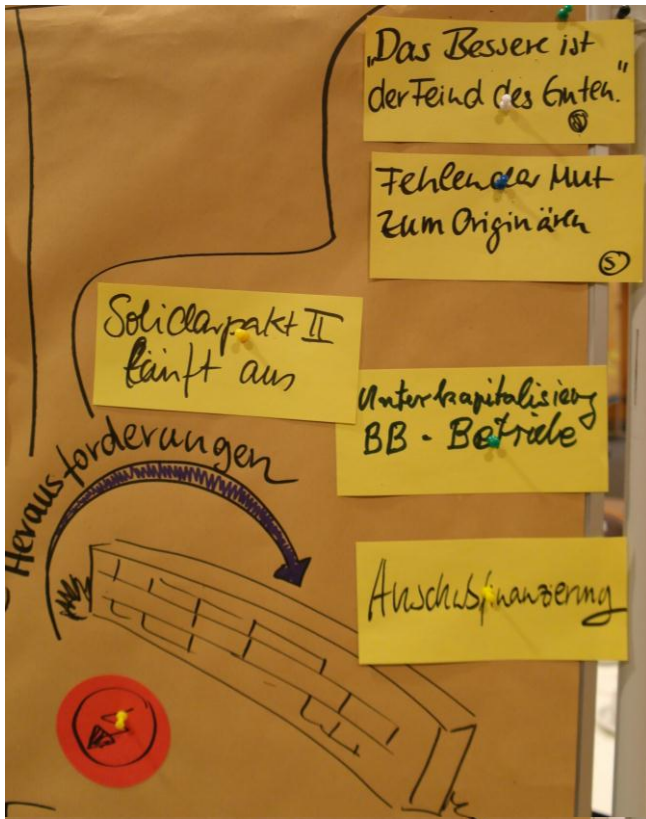 „Das Bessere ist
der Feind des Guten."
S
Fehlender Mut
zum Originären
S
Solidarpakt II
läuft aus
Unterkapitalisierg
BB - Betriebe
Herausforderungen
Anschubfinanzierung